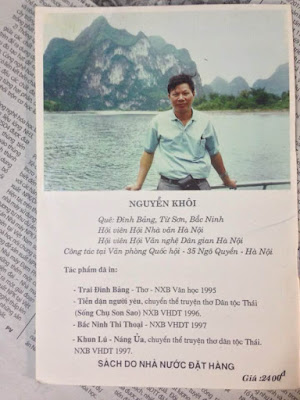 NGUYỄN KHÔI
Quê: Đình Bảng, Từ Sơn, Bắc Ninh
Hội viên Hội Nhà văn Hà Nội
Hội viên Hội Văn nghệ Dân gian Hà Nội
Công tác tại Văn phòng Quốc hội - 35 Ngô Quyền - Hà Nội
Tác phẩm đã in:
- Trai Đình Bảng - Thơ - NXB Văn học 1995
- Tiễn dặn người yêu, chuyển thể truyện thơ Dân tộc Thái
(Sống Chụ Son Sao) NXB VHDT 1996.
- Bắc Ninh Thi Thoại - NXB VHDT 1997
- Khun Lú - Náng Ủa, chuyển thể truyện thơ dân tộc Thái.
NXB VHDT 1997.
SÁCH DO NHÀ NƯỚC ĐẶT HÀNG
Giá: 2400đ